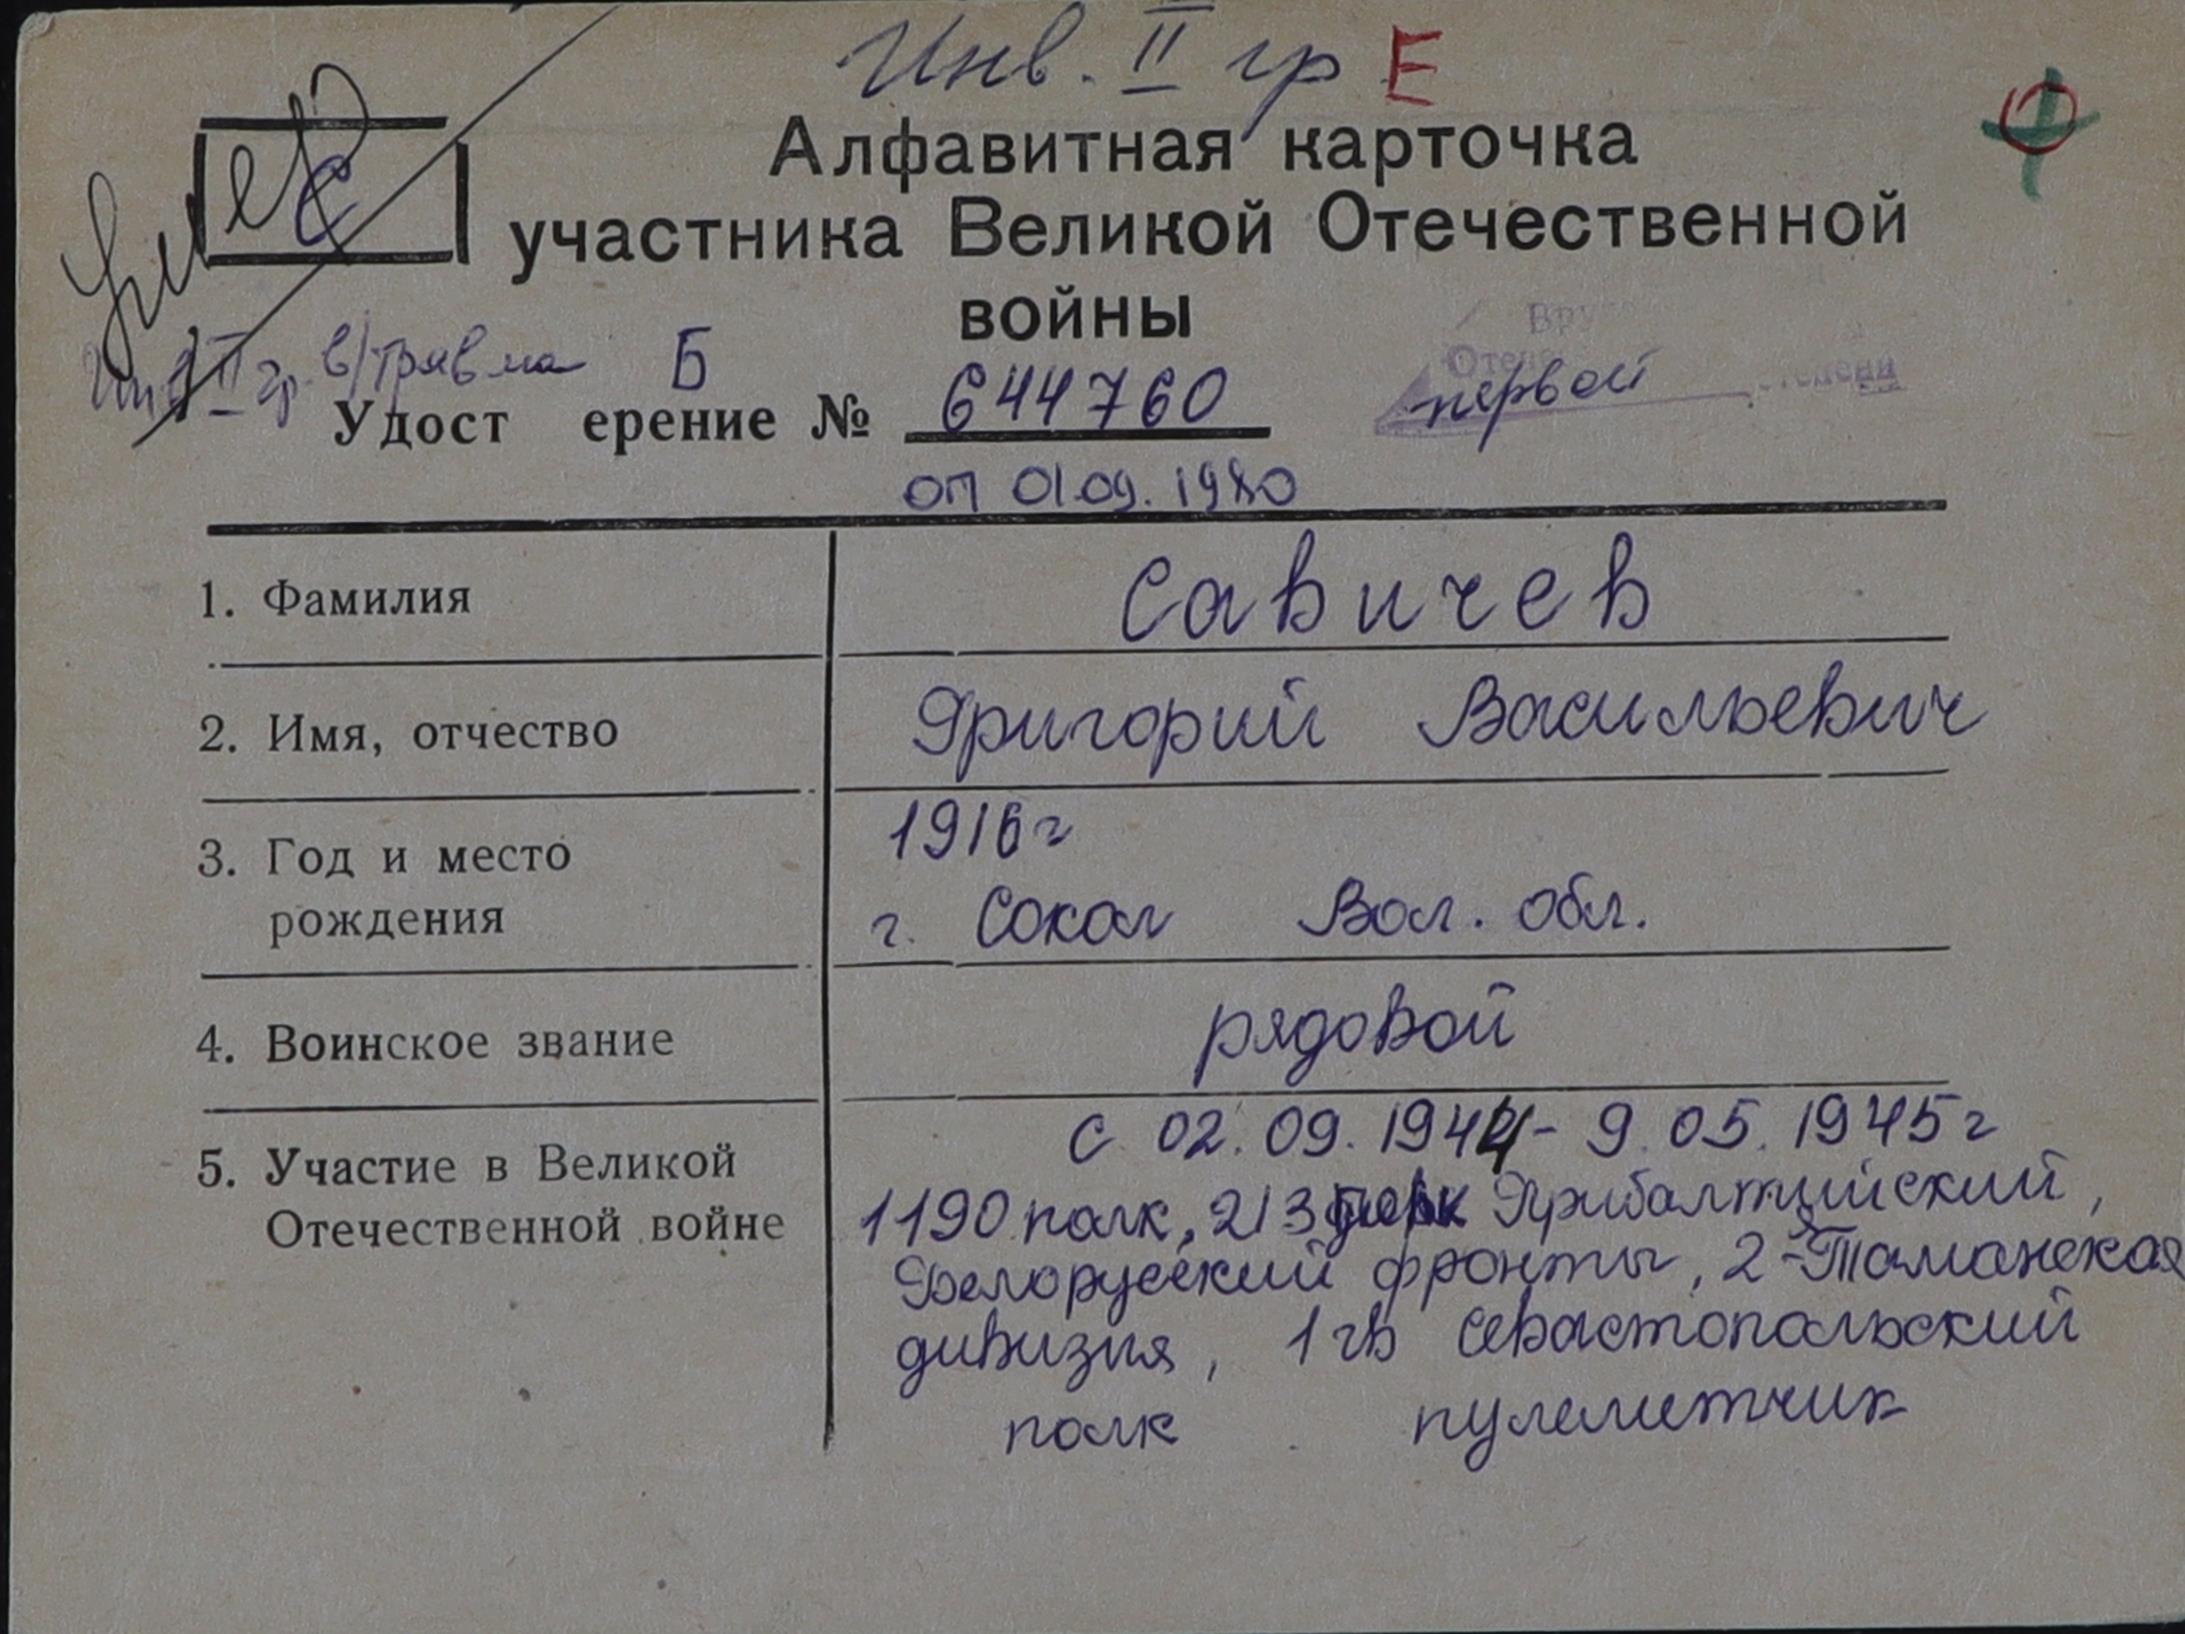 Инв. II гр Е
Алфавитная карточка
участника Великой Отечественной
войны
умер
С
Инв II гр. в/травма Б
Вру
Отече степени
первой
Удост ерение № 644760
от 01.09.1980
1. Фамилия Савичев
2. Имя, отчество Григорий Васильевич
3. Год и место 1916 г
рождения г. Сокол Вол. обл.
4. Воинское звание рядовой
с 02.09.1944 - 9.05.1945 г
5. Участие в Великой 1190 полк, 213 Прибалтийский,
Отечественной войне Белорусский фронты, 2-Таманская
дивизия, 1 гв Севастопольский
полк пулеметчик